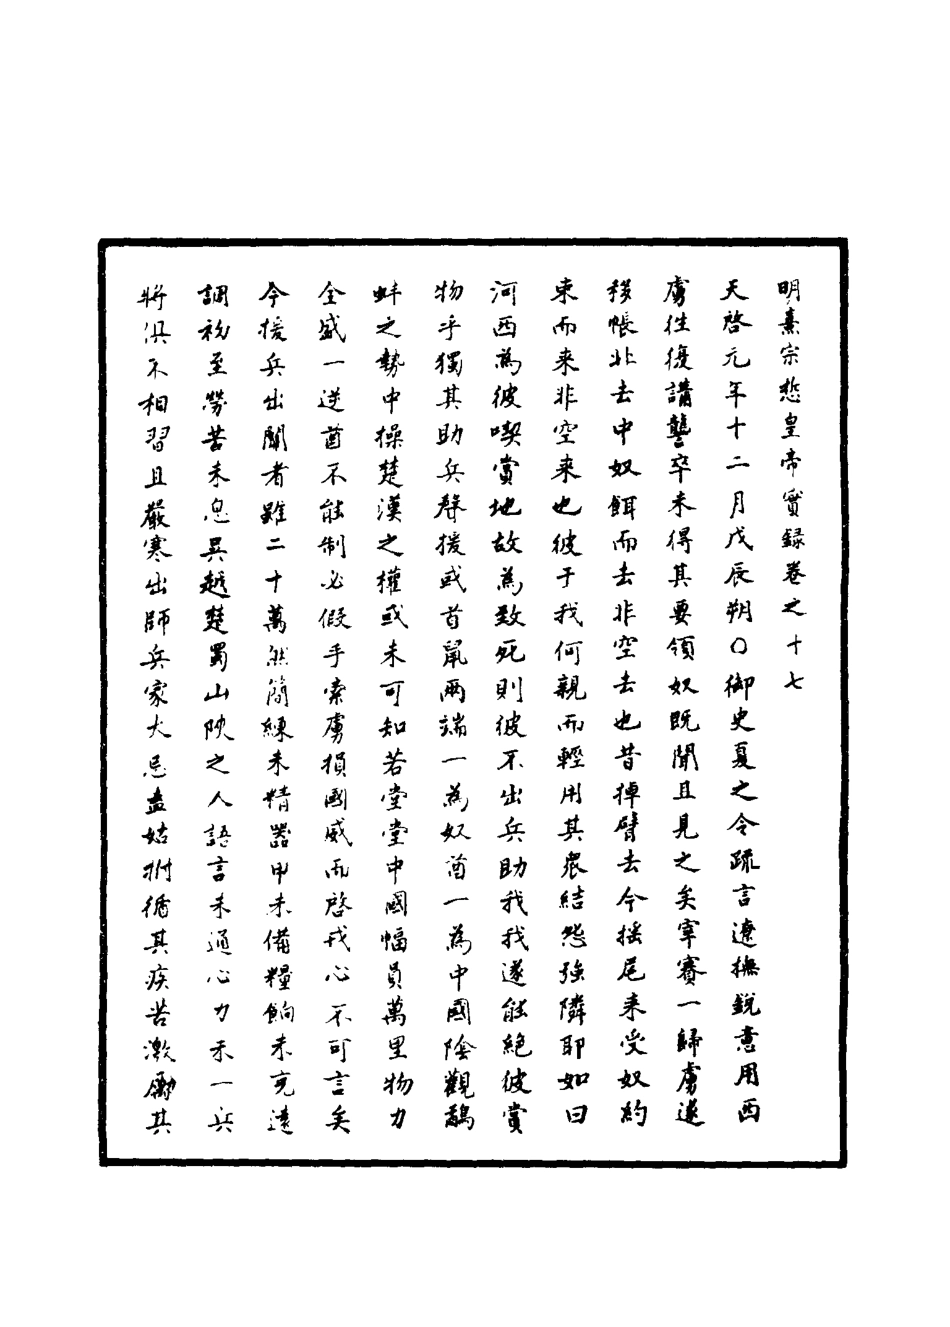 明熹宗悊皇帝實録卷之十七
天啓元年十二月戊辰朔〇御史夏之令疏言遼撫鋭意用西
虜徃復講讋卒未得其要領奴既聞且見之矣宰賽一歸虜遂
移帳北去中奴餌而去非空去也昔掉臂去今揺尾来受奴約
束而来非空来也彼于我何親而輕用其衆結怨強隣耶如曰
河西為彼喫賞地故為致死則彼不出兵助我我遂能絶彼賞
物乎獨其助兵聲援或首鼠兩端一為奴酋一為中國陰觀鷸
蚌之勢中操楚漢之權或未可知若堂堂中國幅員萬里物力
全盛一逆酋不能制必假手索虜損國威而啓戎心不可言矣
今援兵出關者雖二十萬然簡練未精器甲未備糧餉未充遠
調初至勞苦未息吳越楚蜀山陜之人語言未通心力未一兵
將俱不相習且嚴寒出師兵家大忌盍姑拊循其疾苦激勵其